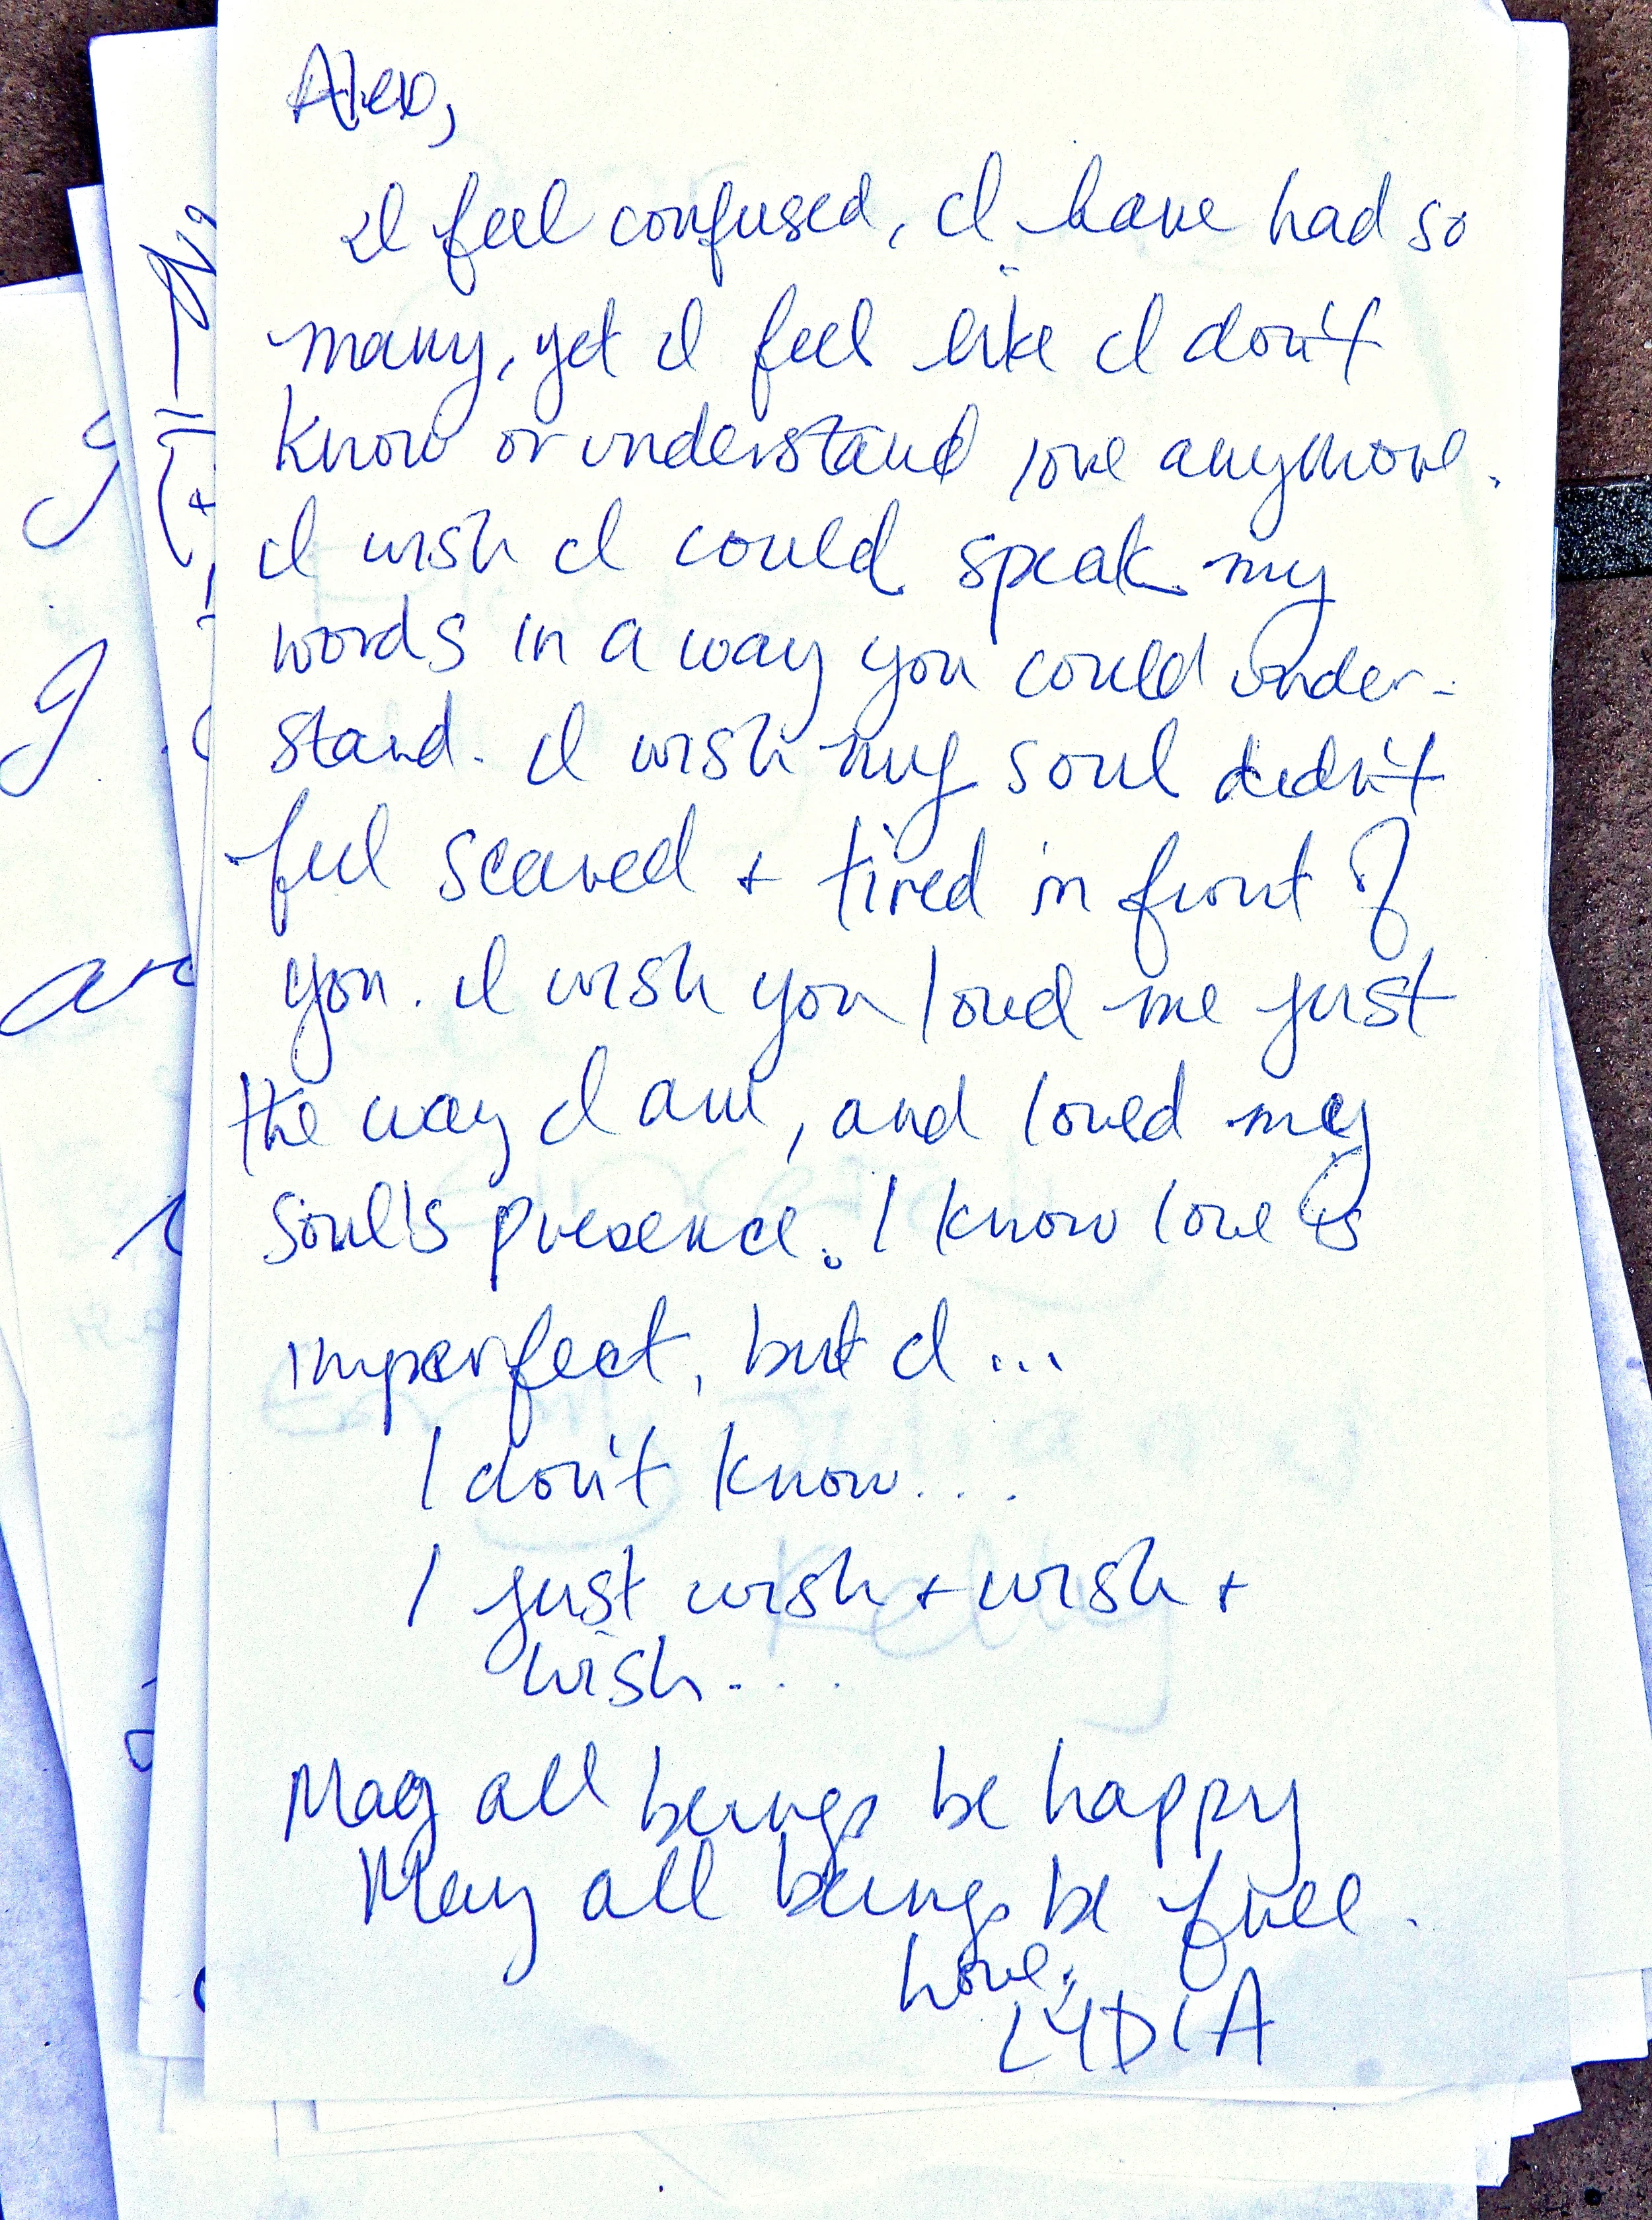 Alex,
I feel confused, I have had so
many, yet I feel like I don't
know or understand love anymore.
I wish I could speak my
words in a way you could under-
stand. I wish my soul didn't
feel scared + tired in front of
you. I wish you loved me just
the way I am, and loved my
soul's presence. I know love is
imperfect, but I...
I don't know...
I just wish + wish +
wish...
May all beings be happy
May all beings be free.
Love,
LYDIA